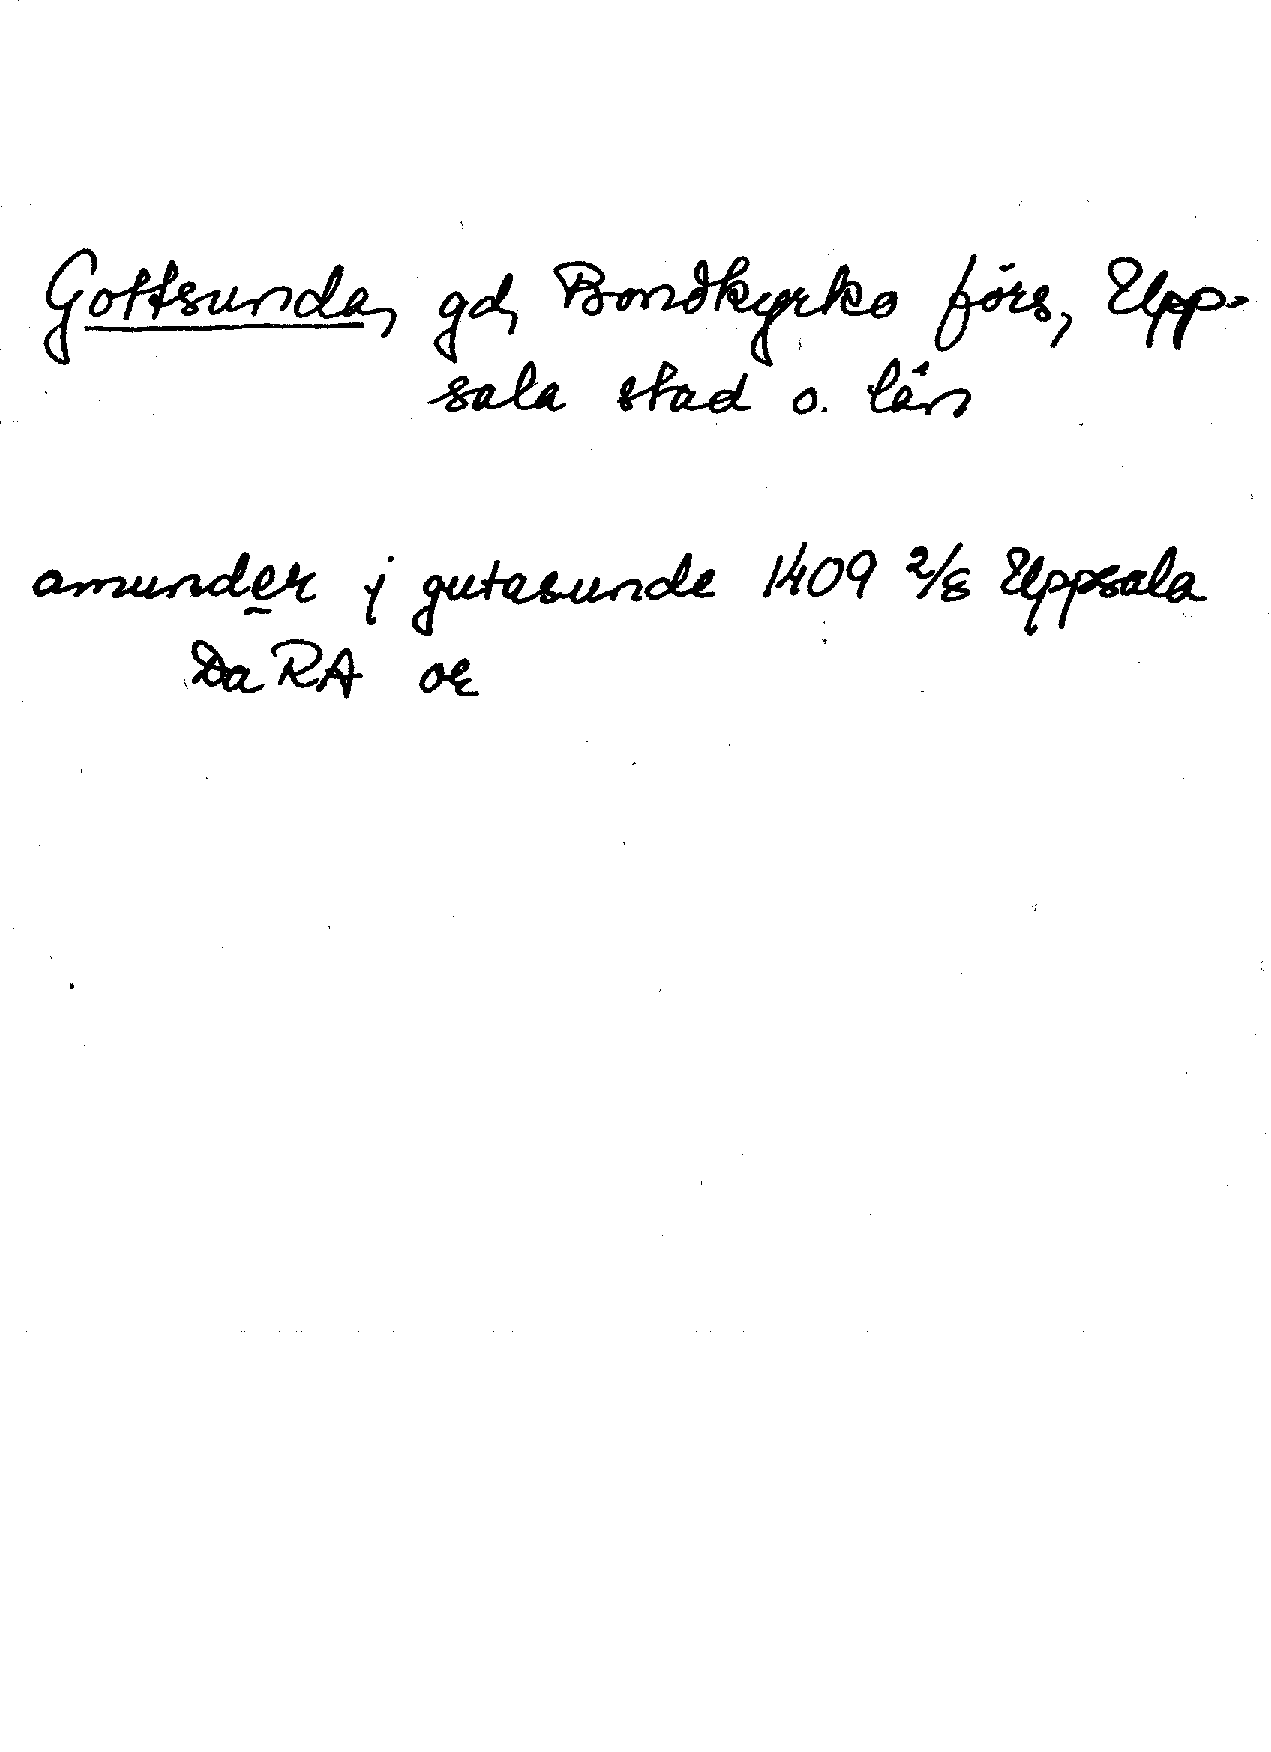 Gottsunda, gd, Bondkyrko förs, Upp-
sala stad o. län
amunder j gutasunde 1409 2/8 Uppsala
Da RA or